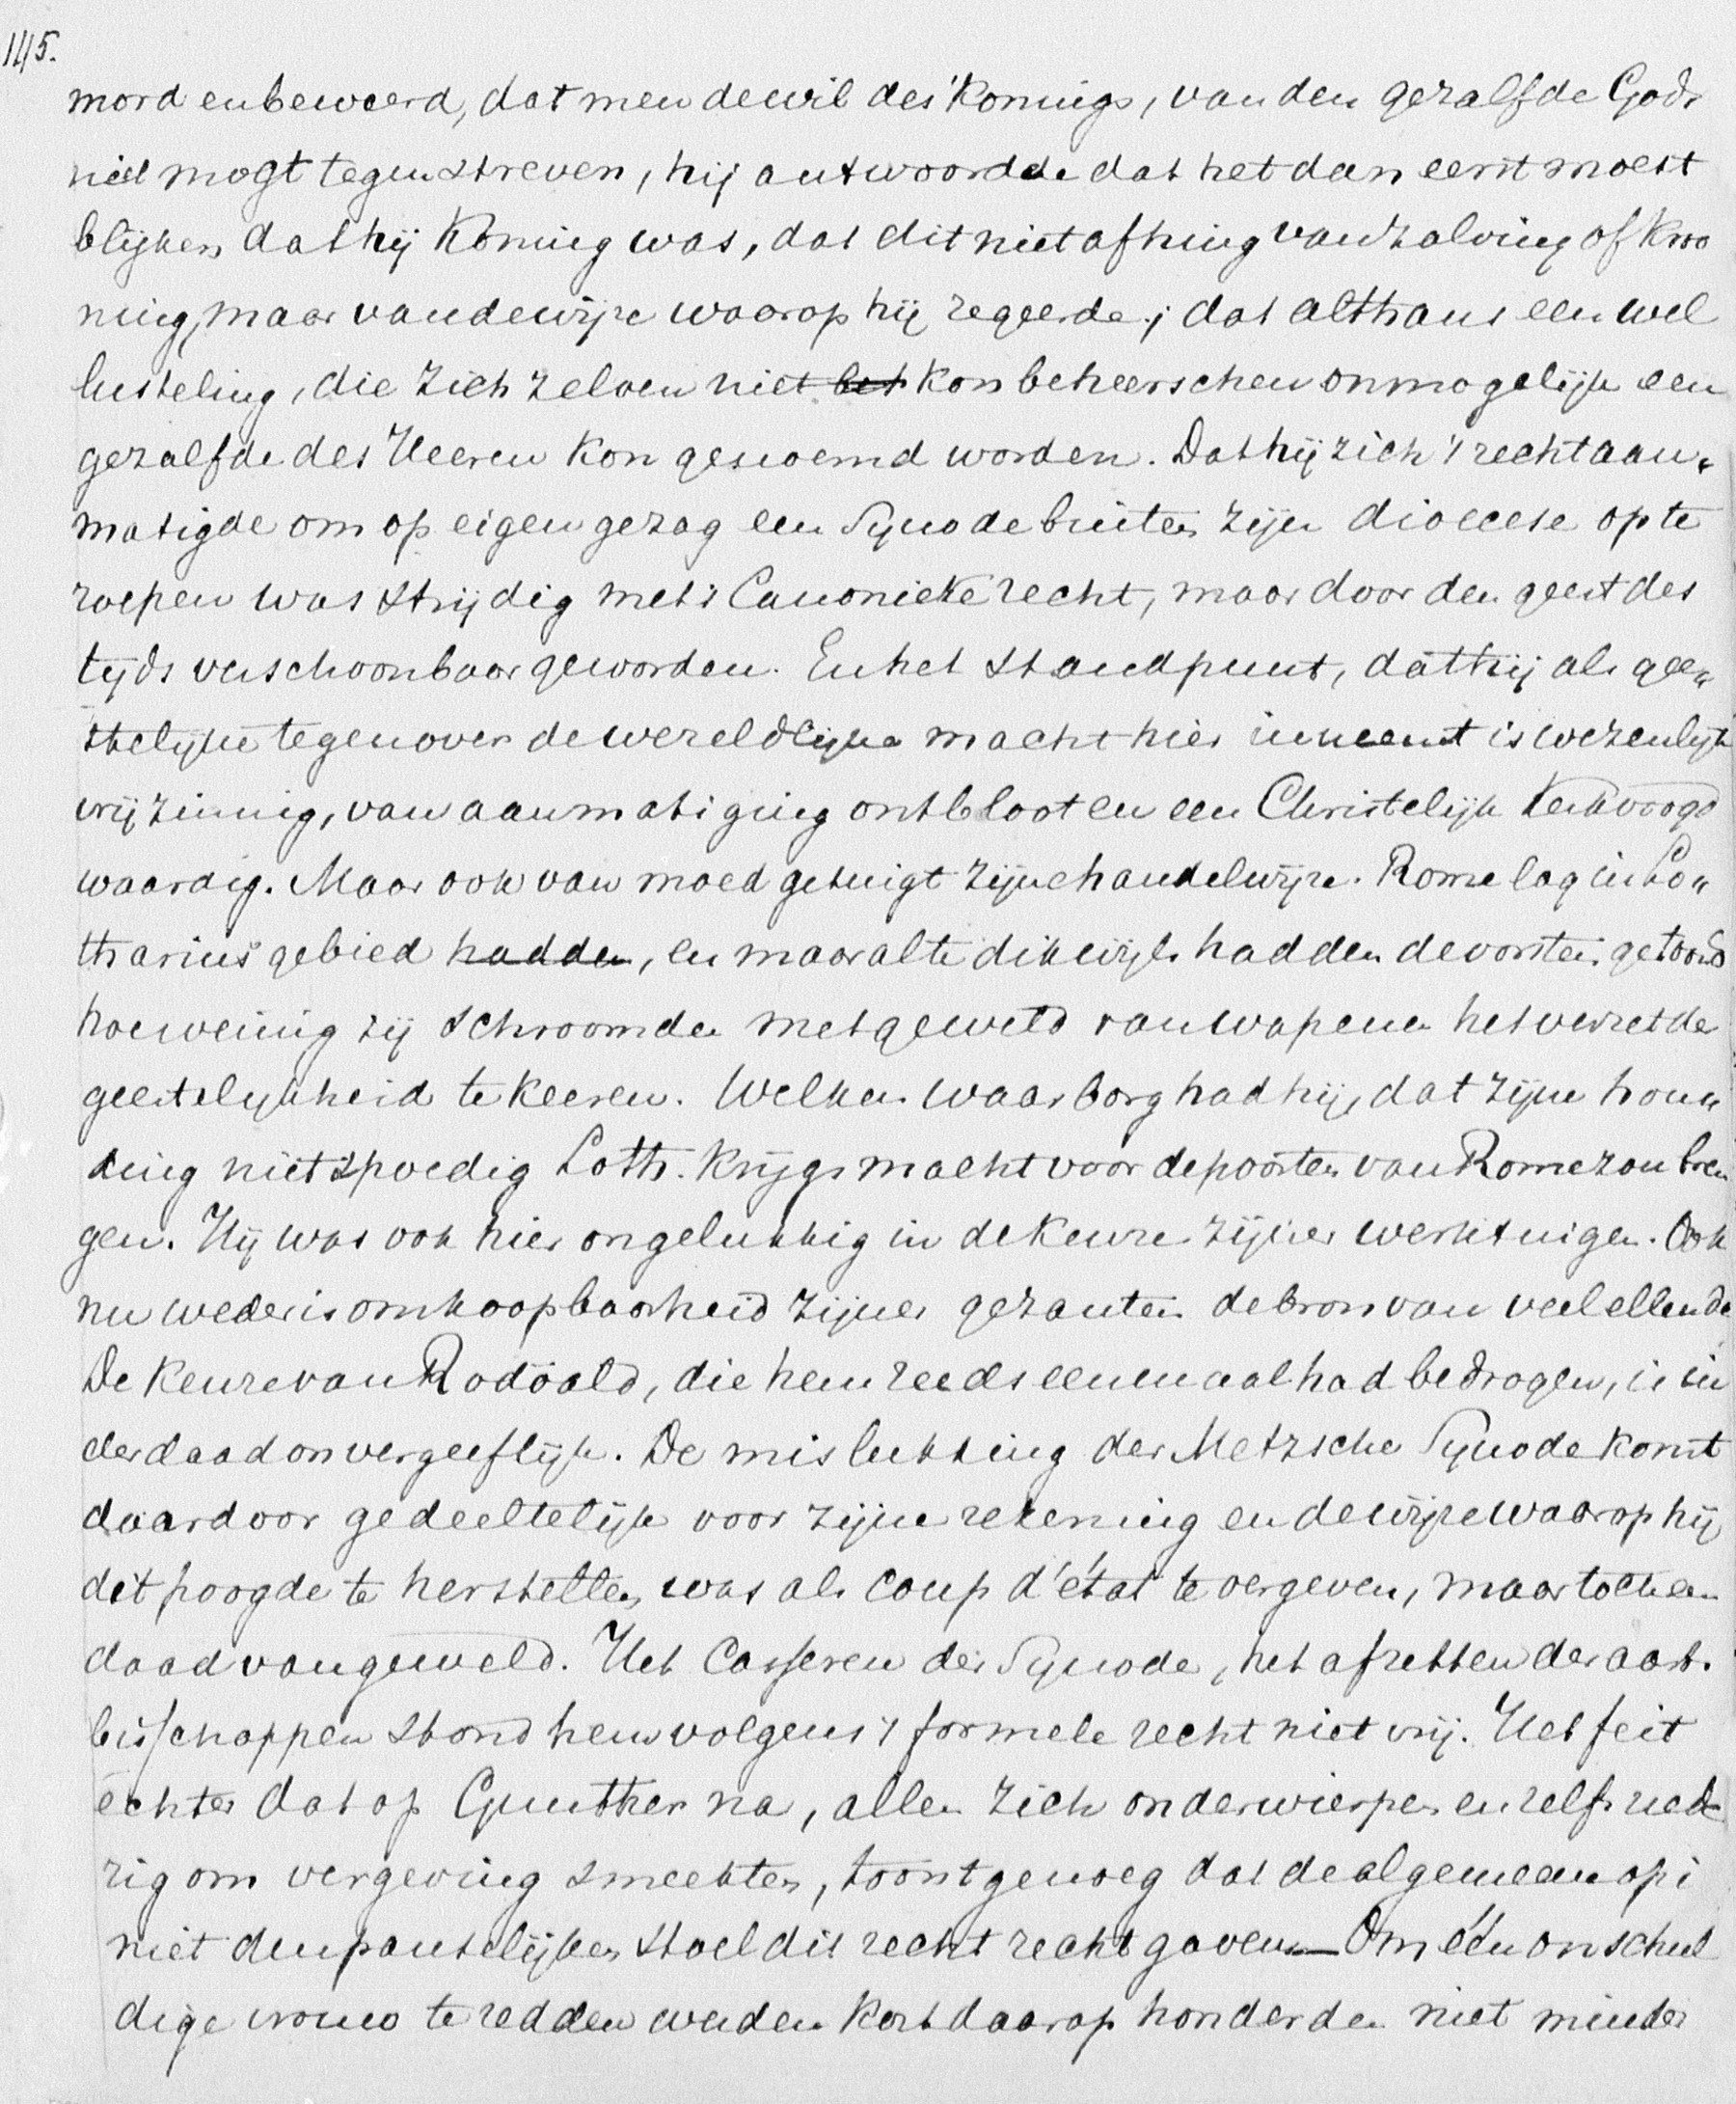 145.
mord en beweerd, dat men de wil des Konings, van den gezalfde Gods
niet mogt tegenstreven, hij antwoordde dat het dan eerst moest
blijken dat hij Koning was, dat dit niet afhing van zalving of kroo
ning, maar van de wijze waarop hij regeerde; dat althans een wel
lusteling, die zich zelven niet bet kon beheerschen onmogelijk een
gezalfde des Heeren kon genoemd worden. Dat hij zich 't recht aan„
matigde om op eigen gezag een Synode buiten zijn dioecese op te
roepen was strijdig met 't Canonieke recht, maar door den geest des
tijds verschoonbaar geworden. En het standpunt, dat hij als gee„
stelijke tegenover de wereldlijke macht hier inneemt is wezenlijk
vrijzinnig, van aanmatiging ontbloot en een Christelijk Kerkvoogd
waardig. Maar ook van moed getuigt zijne handelwijze. Rome lag in Lo„
tharius gebied hadden, en maar al te dikwijls hadden de vorsten getoond
hoe weinig zij schroomden met geweld van wapenen het verzet der
geestelijkheid te keeren. Welken waarborg had hij, dat zijne hou„
ding niet spoedig Loth. krijgsmacht voor de poorten van Rome zou bren
gen. Hij was ook hier ongelukkig in de keuze zijner werktuigen. Ook
nu weder is omkoopbaarheid zijner gezanten de bron van veel ellende
De keuze van Rodoald, die hem reeds eenmaal had bedrogen, is in
derdaad onvergeeflijk. De mislukking der Metzsche Synode komt
daardoor gedeeltelijk voor zijne rekening en de wijze waarop hij
dit poogde te herstellen was als coup d'état te vergeven, maar toch een
daad van geweld. Het Casseren der Synode, het afzetten der aart.
bisschoppen stond hem volgens 't formele recht niet vrij. Het feit
echter dat op Gunther na, allen zich onderwierpen en zelfs ned
rig om vergeving smeekten, toont genoeg dat de algemeene opi
niet den pauselijken stoel dit recht recht gaven — Om één onschul
dige vrouw te redden werden kort daarop honderden niet minder